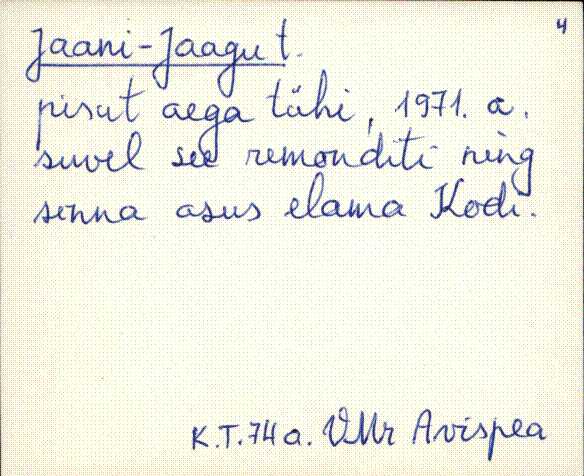 4
Jaani-Jaagu t.
pisut aega tühi, 1971. a.
suvel see remonditi ning
sinna asus elama Kodi.
K.T. 74 a. VMr Avispea